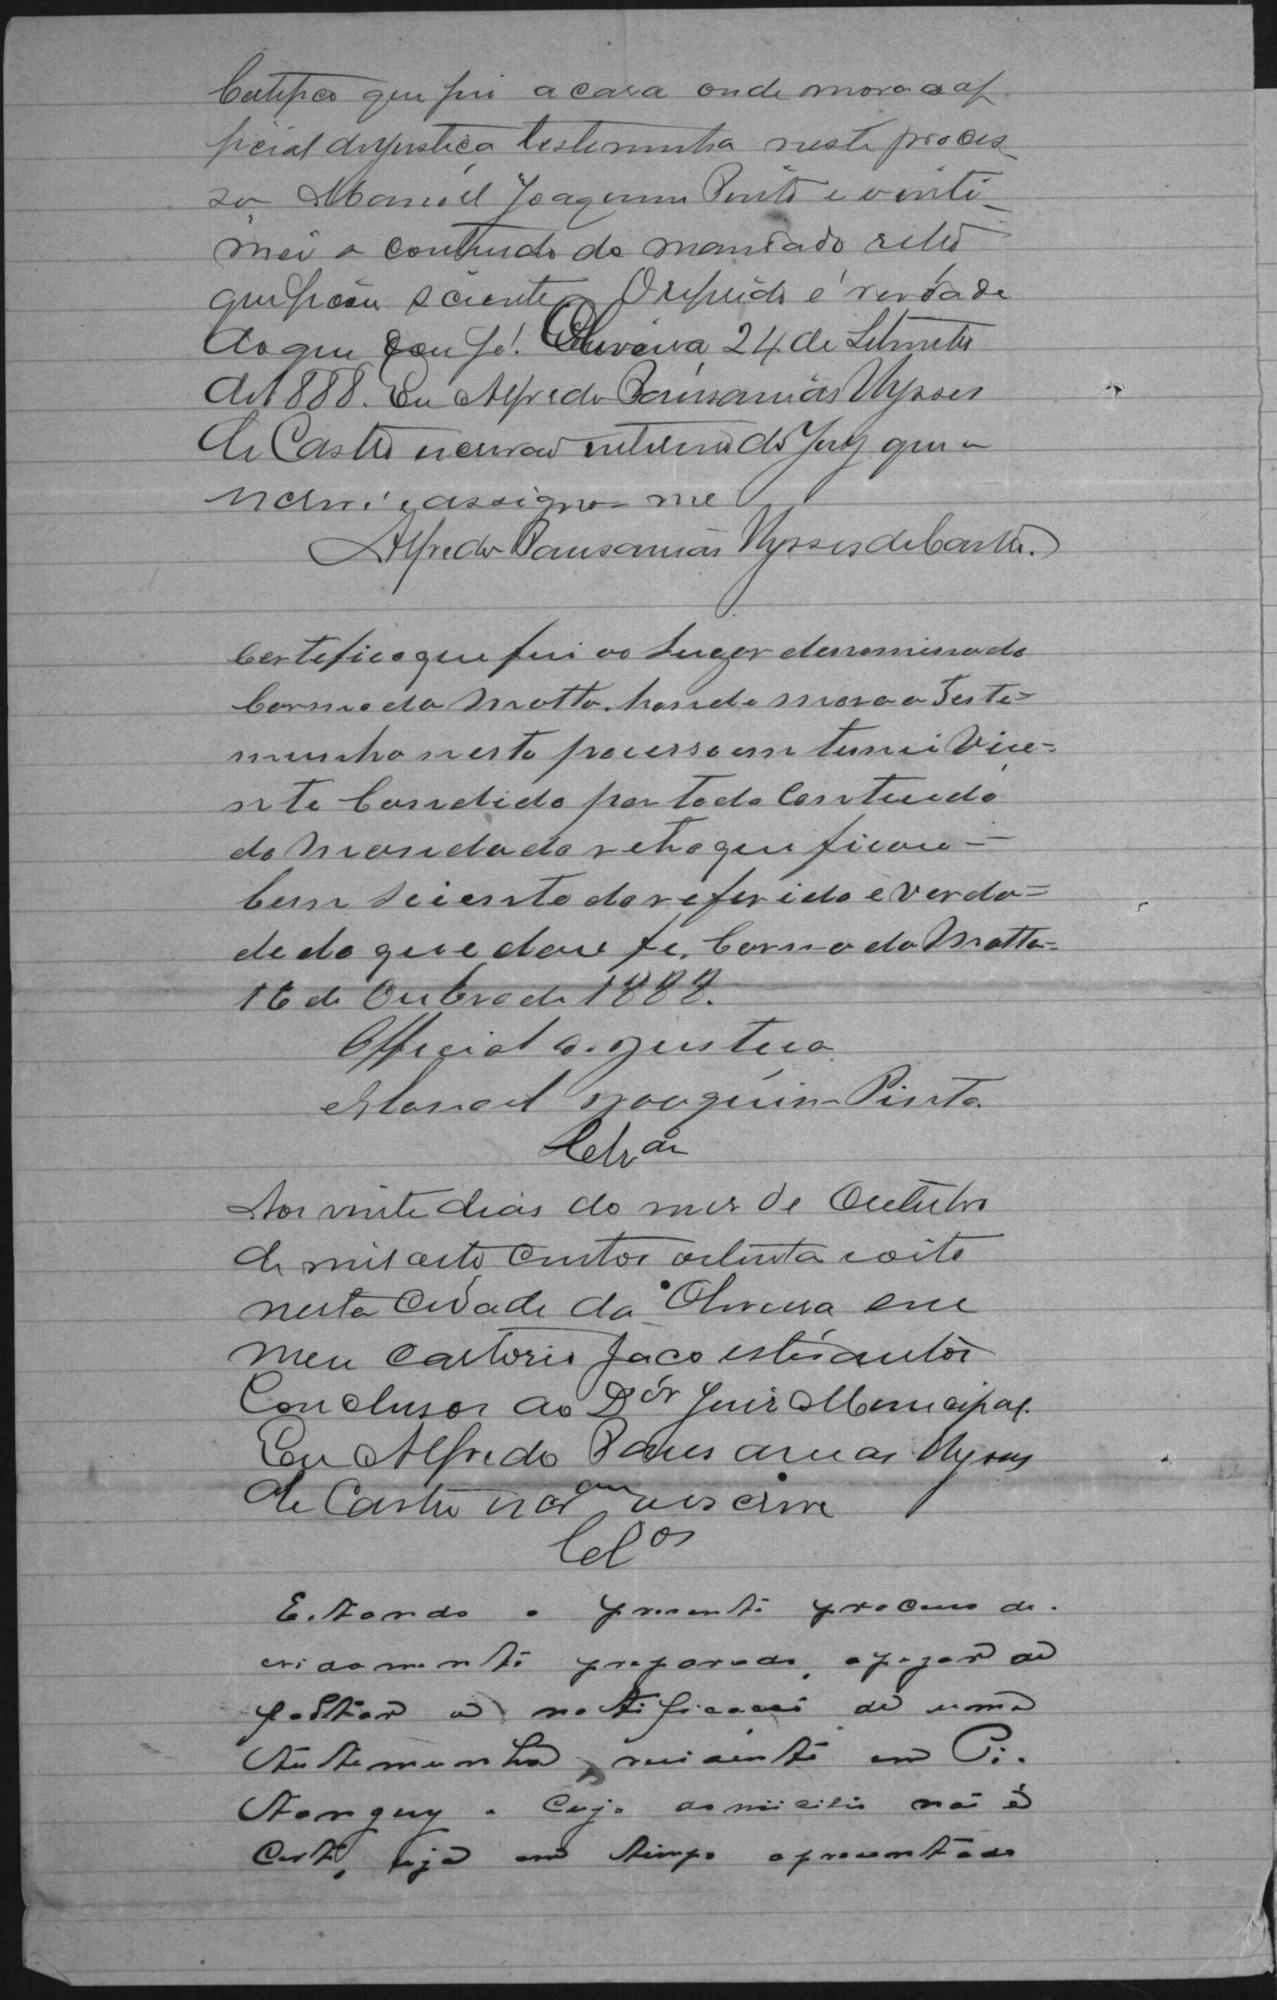 Certifico que fui a casa onde mora o of
ficial de justiça testemunha neste proces_
so Manoel Joaquim Pinto e o inti_
mei o contiudo do mandado retro
que ficou sciente. O referido é verdade
do que dou fé. Oliveira 24 de Setembro
de 1888. Eu Alfredo Pausanias Ulysses
de Castro escrivão interino do Jury que o
escrevi e assigno-me
Alfredo Pausanias Ulysses de Castro.
Certefico que fui ao Lugar denominado
Carmo da Motta. honde mora a Teste=
munha nesto processo em temei Vice=
nte Candido por todo Contuedo
do Mandado retro que ficou-
bem sciente do referido e verda=
de do que dou fe, Carmo da Motta=
16 de Outbro de 1888.
Official de justica
Manoel Joaquim Pinto.
Clsão
Aos vinte dias do mes de Outubro
de mil oito centos oitenta e oito
nesta Cidade da Oliveira em
meu cartorio faço estes autos
Conclusos ao Dor Juiz Municipal.
Eu Alfredo Pausanias Ulysses
de Castro escram o escrevi
Clos
Estando o presente processo de-
vidamente preparado, apezar de
faltar a notificação de uma
testemunha, residente em Pi-
tanguy e cujo domicilio não é
certo, seja em tempo apresentado